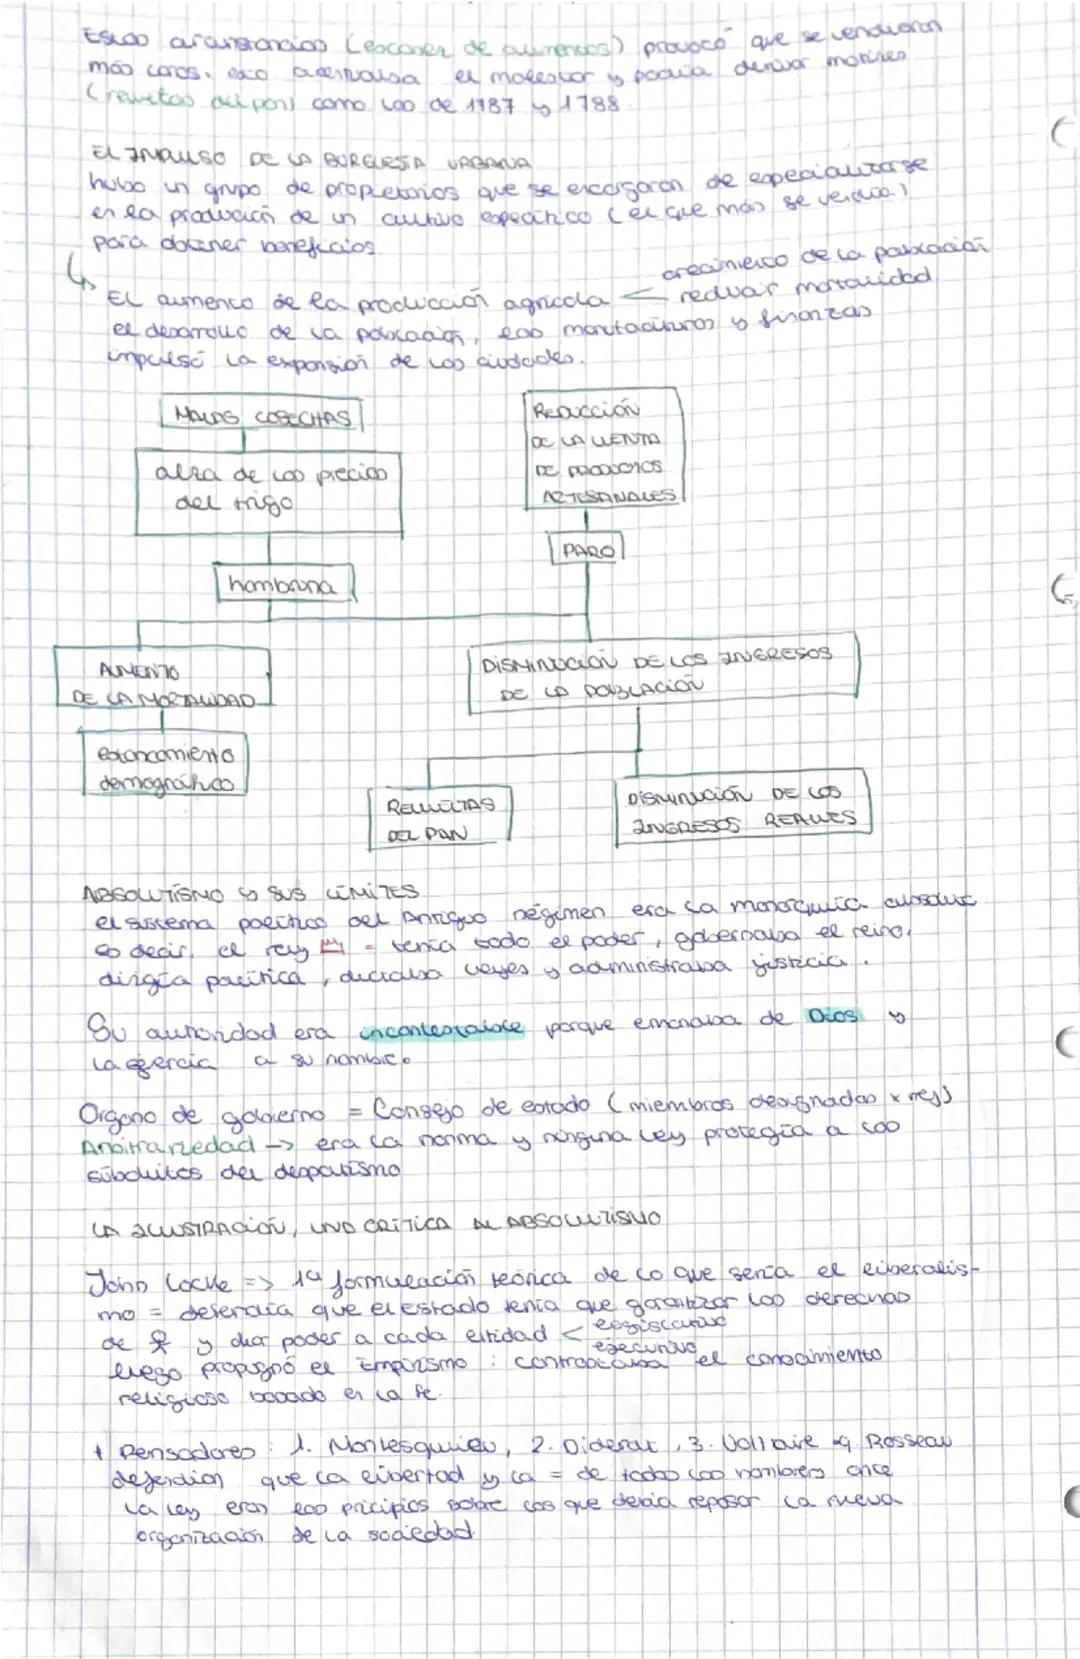 Estas circunstancias (escasez de alimentos) provocó que se vendieran
más caros. eso acentuaba el malestar y podía derivar motines
(revueltas del pan) como las de 1787 y 1788
EL IMPULSO DE LA BURGUESÍA URBANA
hubo un grupo de propietarios que se encargaron de especializarse
en la producción de un cultivo específico (el que más se vendía)
para obtener beneficios.
crecimiento de la población
El aumento de la producción agrícola < reducir mortalidad
el desarrollo de la población, las manufacturas y finanzas
impulsó la expansión de las ciudades.
MALAS COSECHAS
REDUCCIÓN
DE LA VENTA
DE PRODUCTOS
ARTESANALES
alza de los precios
del trigo
PARO
hambruna
AUMENTO
DE LA MORTALIDAD
DISMINUCIÓN DE LOS INGRESOS
DE LA POBLACIÓN
estancamiento
demográfico
REVUELTAS
DEL PAN
DISMINUCIÓN DE LOS
INGRESOS REALES
ABSOLUTISMO y SUS LÍMITES
el sistema político del Antiguo Régimen era la monarquía absoluta
es decir, el rey = tenía todo el poder, gobernaba el reino,
dirigía política, dictaba leyes y administraba justicia.
Su autoridad era incontestable porque emanaba de Dios y
la ejercía a su nombre.
Órgano de gobierno = Consejo de estado (miembros designados x rey)
Arbitrariedad -> era la norma y ninguna ley protegía a los
súbditos del despotismo
LA ILUSTRACIÓN, UNA CRÍTICA AL ABSOLUTISMO
John Locke => 1ª formulación teórica de lo que sería el liberalis-
mo = defendía que el estado tenía que garantizar los derechos
de y dar poder a cada entidad < legislativo
ejecutivo
luego propugnó el Empirismo : el conocimiento
religioso basado en la fe.
+ Pensadores : 1. Montesquieu, 2. Diderot, 3. Voltaire 4. Rosseau
defendían que la libertad y la = de todos los hombres ante
la ley eran los pricipios sobre los que debía reposar la nueva
organización de la sociedad.